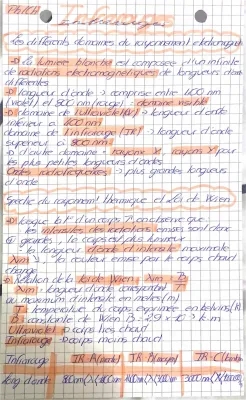 Infrarouges
Les différents domaines du rayonnement électromagnét
La lumière blanche est composée d'un infinité
de radiations électromagnétiques de longueurs d'onde
différentes
longueur d'onde comprise entre 400 nm
(violet) et 800 nm (rouge) = domaine visible
domaine de l'ultraviolet (UV) longueur d'onde
inférieur à 400 nm
domaine de l'infrarouge (IR) longueur d'onde
supérieur à 800 nm
d'autre domaine : rayons X, rayons γ pour
les plus petites longueurs d'onde
Ondes radiofréquences plus grandes longueurs
d'onde
Spectre du rayonnement thermique et loi de Wien
lorsque la T° d'un corps on observe que
les intensités des radiations émises sont dans
grandes, le corps est plus lumineux
la longueur d'onde d'intensité maximale
λm la couleur émise par le corps chaud
change
Relation de la loi de Wien λm = B/T
λm : longueur d'onde correspondant
au maximum d'intensité en mètres (m)
T température du corps exprimée en kelvins (K)
B constante de Wien B = 2,9 × 10 K m
Ultraviolet corps très chaud
Infrarouge corps moins chaud
Infrarouge IR A IR B IR C
Long d'onde